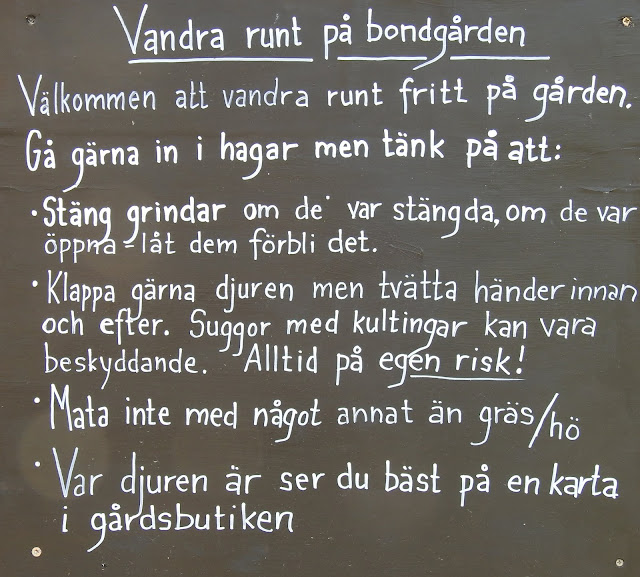 Vandra runt på bondgården
Välkommen att vandra runt fritt på gården.
Gå gärna in i hagar men tänk på att:
• Stäng grindar om de var stängda, om de var
öppna - låt dem förbli det.
• Klappa gärna djuren men tvätta händer innan
och efter. Suggor med kultingar kan vara
beskyddande. Alltid på egen risk!
• Mata inte med något annat än gräs/hö
• Var djuren är ser du bäst på en karta
i gårdsbutiken